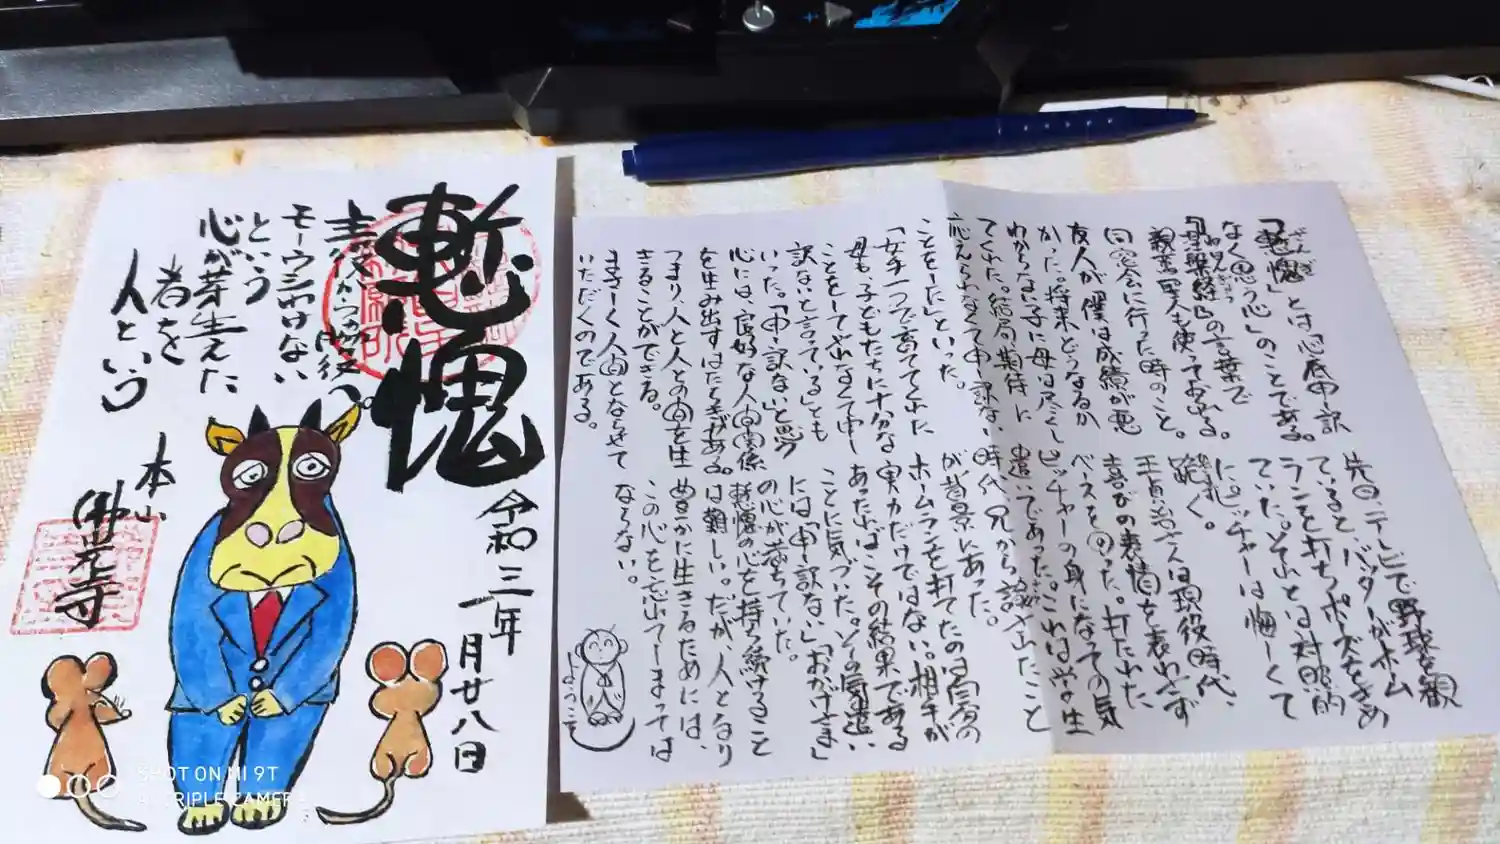 慙愧
モーウシわけない
という
心が芽生えた
者を
人という
本山
令和三年
月廿八日
「慙愧」とは「心底申訳
ざんぎ
なく思う心」のことである。
『涅槃経』の言葉で
親鸞聖人も使っておられる。
同窓会に行った時のこと。
友人が僕は成績が悪
かった。将来どうなるか
わからない子に母は尽くし
てくれた。結局、期待に
応えられなくて申し訳ない
ことをした」といった。
「女手一つで育ててくれた
母も、子どもたちに十分な
ことをしてやれなくて申し
訳ないと言っている」とも
いった。「申し訳ない」と思う
心には、良好な人間関係
を生み出すはたらきがある。
つまり、人と人との間を生
きることができる。
まさしく人間とならせて
いただくのである。
先日テレビで野球を観
ていると、バッターがホーム
ランを打ちポーズをきめ
ていた。それとは対照的
にピッチャーは悔しくて
王貞治さんは現役時代、
ホームランを打っても
喜びの表情を表わさず
ベースを回った。打たれた
ピッチャーの身になっての気
遣いであった。これは学生
時代、兄から諭されたこと
が背景にあった。
ホームランを打てたのは自分の
実力だけではない。相手が
あったればこその結果である
ことに気づいた。その気遣い
には「申し訳ない」「おかげさま」
の心が満ちていた。
慙愧の心を持ち続けること
は難しい。だが、人となり
この心を忘れてしまっては
ならない。
ようこそ
SHOT ON MI 9T
AI TRIPLE CAMERA